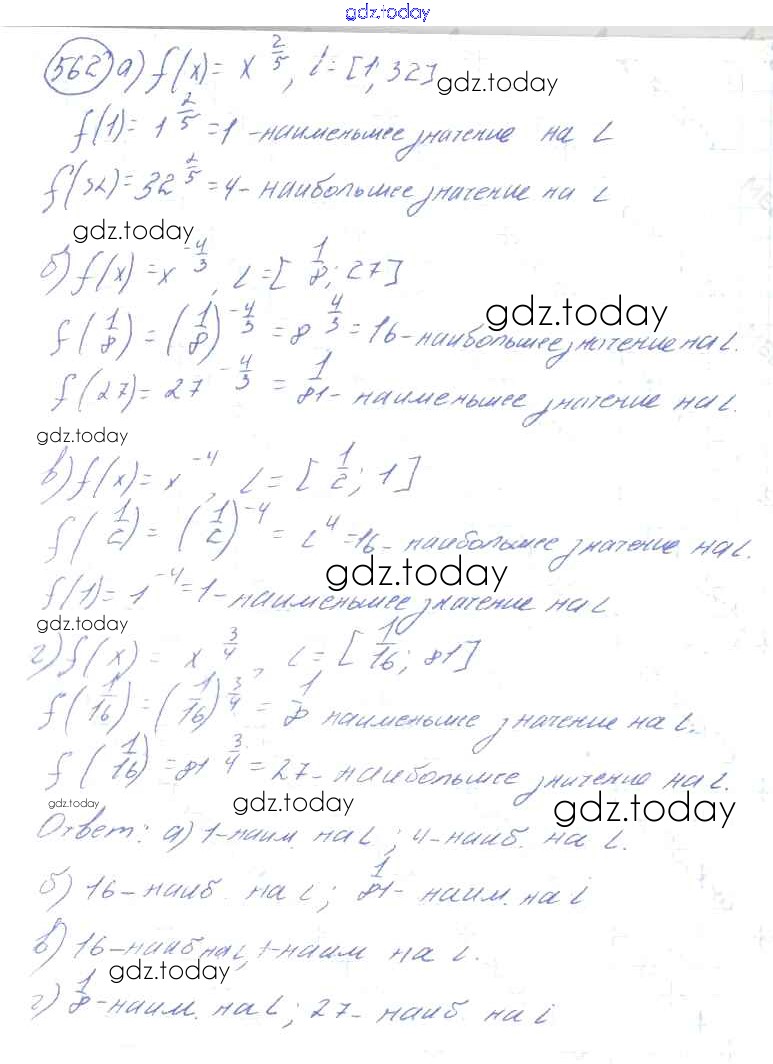 gdz.today
562 а) f(x) = x^{2/5}, L = [1, 32] gdz.today
f(1) = 1^{2/5} = 1 - наименьшее значение на L
f(32) = 32^{2/5} = 4 - наибольшее значение на L
gdz.today
б) f(x) = x^{-4/3}, L = [1/8; 27]
gdz.today
f(1/8) = (1/8)^{-4/3} = 8^{4/3} = 16 - наибольшее значение на L.
f(27) = 27^{-4/3} = 1/81 - наименьшее значение на L.
gdz.today
в) f(x) = x^{-4}, L = [1/2; 1]
f(1/2) = (1/2)^{-4} = 2^4 = 16 - наибольшее значение на L.
gdz.today
f(1) = 1^{-4} = 1 - наименьшее значение на L
gdz.today
г) f(x) = x^{3/4}, L = [1/16; 81]
f(1/16) = (1/16)^{3/4} = 1/8 наименьшее значение на L.
f(1/16) = 81^{3/4} = 27 - наибольшее значение на L.
gdz.today gdz.today gdz.today
Ответ: а) 1 - наим. на L; 4 - наиб. на L.
б) 16 - наиб. на L; 1/81 - наим. на L
в) 16 - наиб на L, 1 - наим на L.
gdz.today
г) 1/8 - наим. на L; 27 - наиб. на L